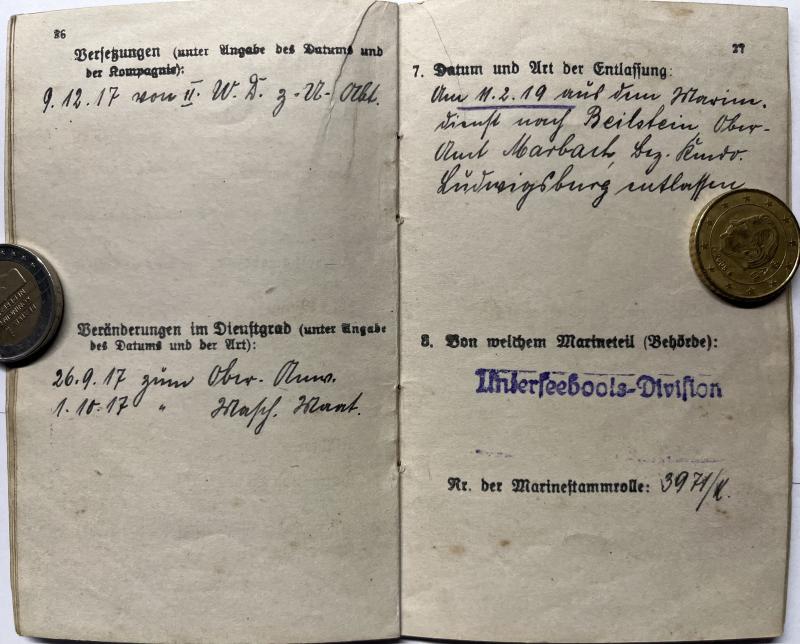 26
Versetzungen (unter Angabe des Datums und
der Kompagnie):
9.12.17 von II. W. D. z. U- Abt.
Veränderungen im Dienstgrad (unter Angabe
des Datums und der Art):
26.9.17 zum Ober- Anw.
1.10.17 " Masch. Maat.
27
7. Datum und Art der Entlassung:
Am 11.2.19 aus dem Marine-
dienst nach Beilstein, Ober-
Amt Marbach, Bez. Kmdo.
Ludwigsburg entlassen
8. Von welchem Marineteil (Behörde):
Unterseeboots-Division
Nr. der Marinestammrolle: 3971/